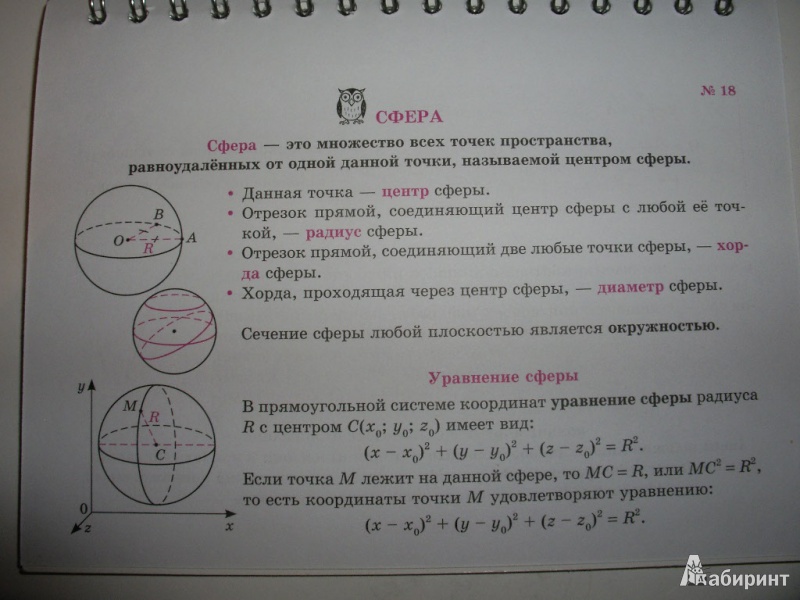 № 18
СФЕРА
Сфера — это множество всех точек пространства,
равноудалённых от одной данной точки, называемой центром сферы.
• Данная точка — центр сферы.
• Отрезок прямой, соединяющий центр сферы с любой её точ-
кой, — радиус сферы.
• Отрезок прямой, соединяющий две любые точки сферы, — хор-
да сферы.
• Хорда, проходящая через центр сферы, — диаметр сферы.
B
O
R
A
Сечение сферы любой плоскостью является окружностью.
Уравнение сферы
В прямоугольной системе координат уравнение сферы радиуса
R с центром C(x₀; y₀; z₀) имеет вид:
(x − x₀)² + (y − y₀)² + (z − z₀)² = R².
Если точка M лежит на данной сфере, то MC = R, или MC² = R²,
то есть координаты точки M удовлетворяют уравнению:
(x − x₀)² + (y − y₀)² + (z − z₀)² = R².
y
M
R
C
0
z
x
Лабиринт